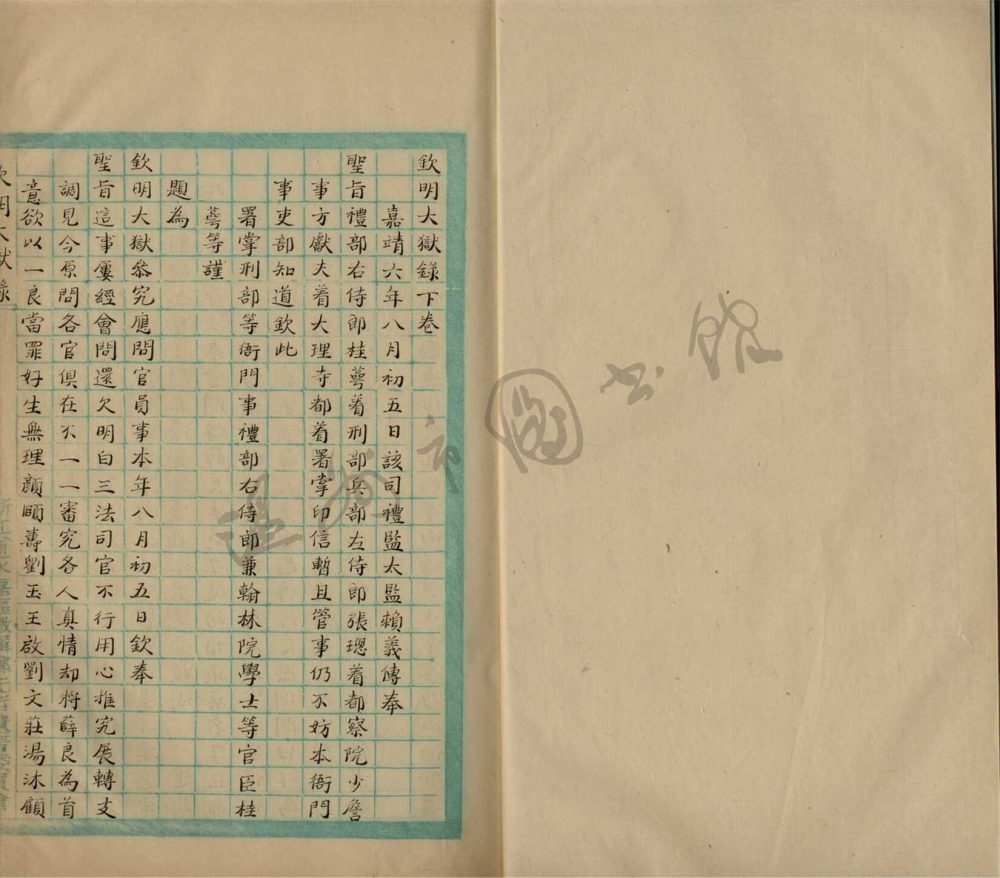 欽明大獄錄下卷
嘉靖六年八月初五日該司禮監太監賴義傳奉
聖旨禮部右侍郎桂萼着刑部兵部左侍郎張璁着都察院少詹
事方獻夫着大理寺都着署掌印信暫且管事仍不妨本衙門
事吏部知道欽此
署掌刑部等衙門事禮部右侍郎兼翰林院學士等官臣桂
萼等謹
題為
欽明大獄叅究應問官員事本年八月初五日欽奉
聖旨這事屢經會問還欠明白三法司官不行用心推究展轉支
調見今原問各官俱在不一一審究各人真情却將薛良為首
意欲以一良當罪好生無理顏頤壽劉玉王啟劉文莊湯沐顧
欽明大獄錄
圖書館